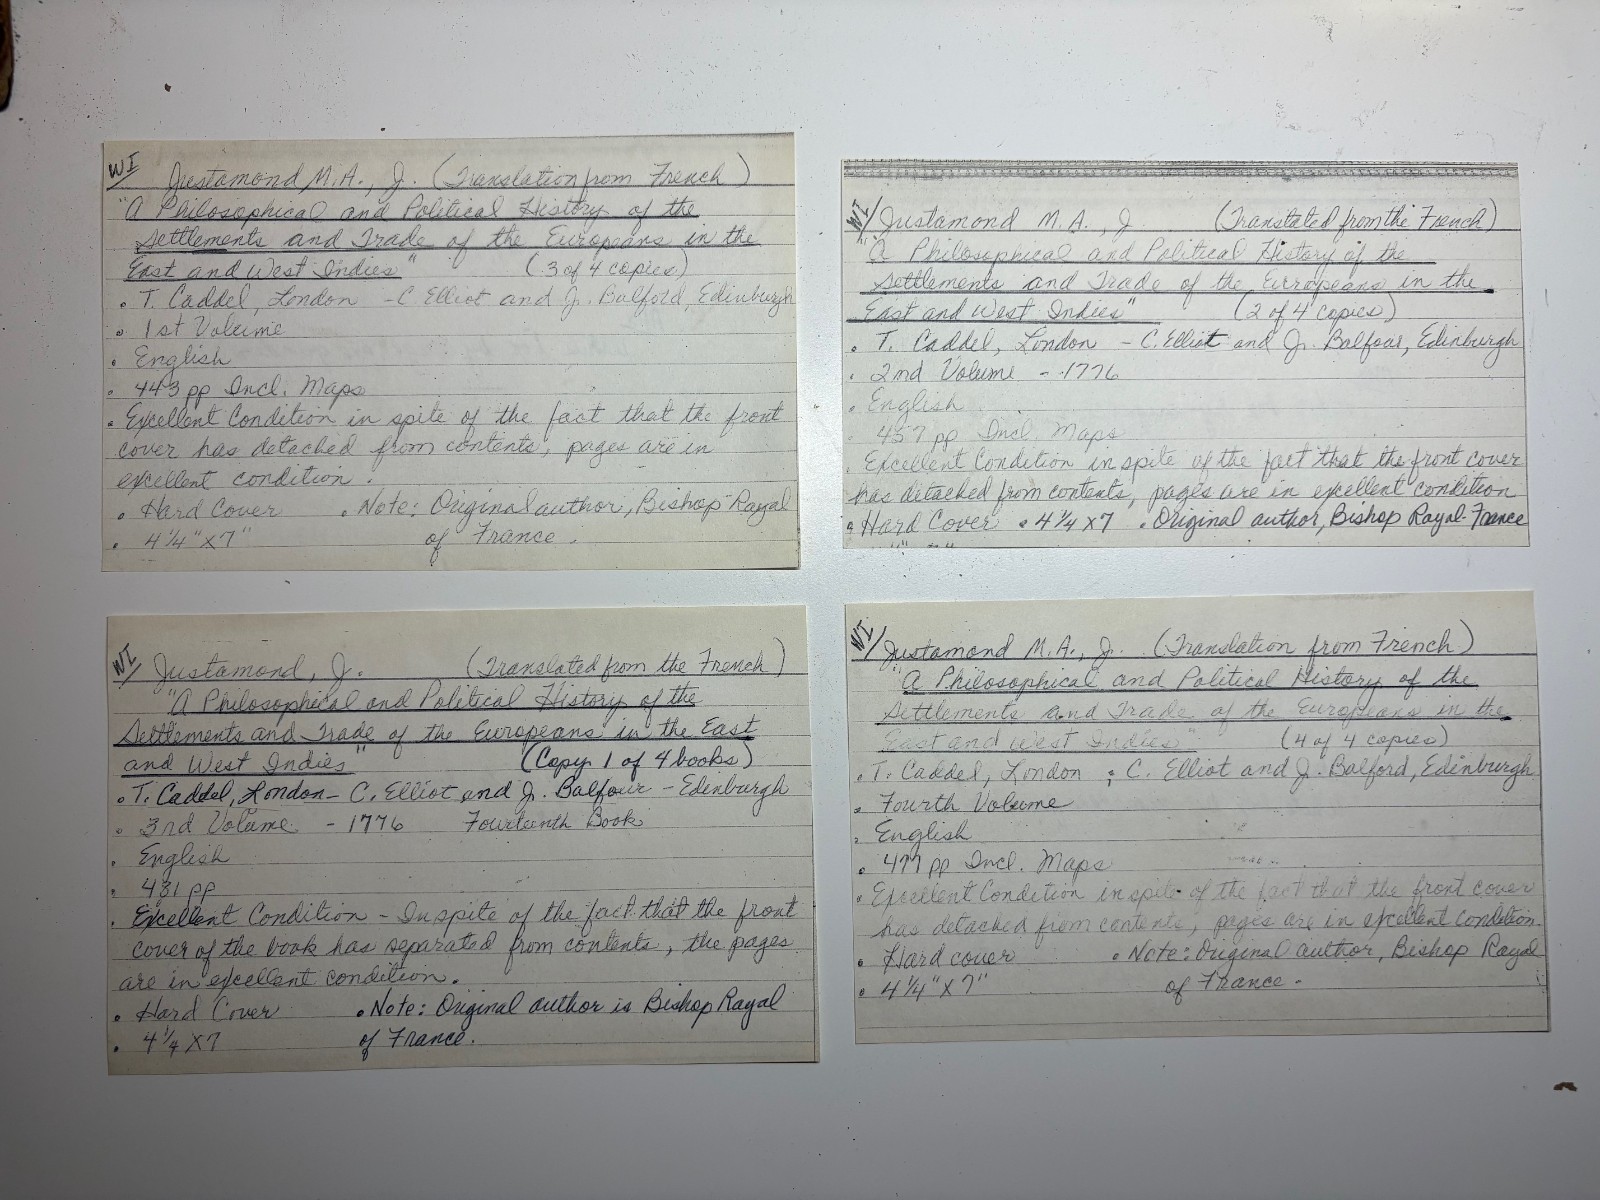 WI/ Justamond, M.A., J. (Translation from French)
"A Philosophical and Political History of the
Settlements and Trade of the Europeans in the
East and West Indies" (3 of 4 copies)
• T. Caddel, London - C. Elliot and J. Balford, Edinburgh
• 1st Volume
• English
• 443 pp Incl. Maps
• Excellent Condition in spite of the fact that the front
cover has detached from contents, pages are in
excellent condition.
• Hard Cover • Note: Original author, Bishop Rayal
• 4 1/4" x 7" of France.
WI/ Justamond M.A., J (Translated from the French)
"A Philosophical and Political History of the
Settlements and Trade of the Europeans in the
East and West Indies" (2 of 4 copies)
• T. Caddel, London - C. Elliot and J. Balfour, Edinburgh
• 2nd Volume - 1776
• English
• 457 pp Incl. Maps
• Excellent Condition in spite of the fact that the front cover
has detached from contents, pages are in excellent condition
• Hard Cover • 4 1/4 x 7 • Original author, Bishop Rayal-France
WI/ Justamond, J. (Translated from the French)
"A Philosophical and Political History of the
Settlements and Trade of the Europeans in the East
and West Indies" (Copy 1 of 4 books)
• T. Caddel, London - C. Elliot and J. Balfour - Edinburgh
• 3rd Volume - 1776 Fourteenth Book
• English
• 431 pp
• Excellent Condition - In spite of the fact that the front
cover of the book has separated from contents, the pages
are in excellent condition.
• Hard Cover • Note: Original author is Bishop Rayal
• 4 1/4 x 7 of France.
WI/ Justamond M.A., J. (Translation from French)
"A Philosophical and Political History of the
Settlements and Trade of the Europeans in the
East and West Indies" (4 of 4 copies)
• T. Caddel, London ; C. Elliot and J. Balford, Edinburgh
• Fourth Volume
• English
• 477 pp Incl. Maps
• Excellent Condition in spite of the fact that the front cover
has detached from contents, pages are in excellent condition
• Hard cover • Note: Original author, Bishop Rayal
• 4 1/4" x 7" of France.